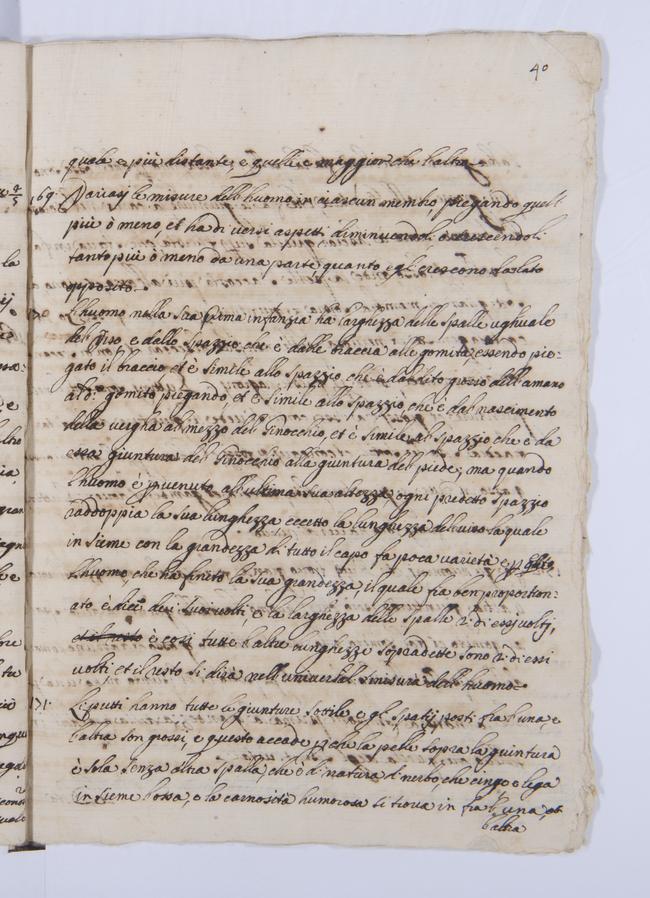 40
quale e più distante, e quelle e maggior che l'altra
169 Variasj le misure dell'huomo in ciascun membro, piegando quell
più ò meno, et ha diverse aspetti diminuendoli ò crescendoli
tanto più ò meno da una parte, quanto egl crescono da lato
opposito.
170 L'huomo nella sua prima infanzia ha larghezza delle spalle ughuale
del viso, e dello spazzio che è dalle braccia alle gomita, essendo pie-
gato il braccio et è simile allo spazzio, chi è dal dito grosso dell'amano
al d.º gomito piegando, et è simile allo spazzio, che è dal nascimento
della vergha al mezzo del Ginocchio, et è simile al spazzio che è da
essa giuntura del Ginocchio alla giuntura del piede; ma quando
L'huomo è pvenuto all'ultima sua altezza, ogni predetto spazzio
raddoppia la sua lunghezza eccetto la lunghezza del viso la quale
insieme con la grandezza di tutto il capo fa poca varietà e p
L'huomo che ha finito la sua grandezza, il quale fia ben proportion-
ato è dieci dei suoi volti, e la larghezza delle spalle 2 di essj voltj,
et il resto è così tutte l'altre lunghezze sopradette sono 2 di essi
volti, et il resto si dirà nell'universal misura dell'huomo.
171 Li putti hanno tutte le giunture sottile, e gl spatij posti fra l'una, e
l'altra son grossi, e questo accade pche la pelle sopra la giuntura
è sola senza altra spalla, che è di natura di nerbo, che cinge e lega
insieme l'ossa, e la carnosità humorosa si trova in fra l'una, et
l'altra